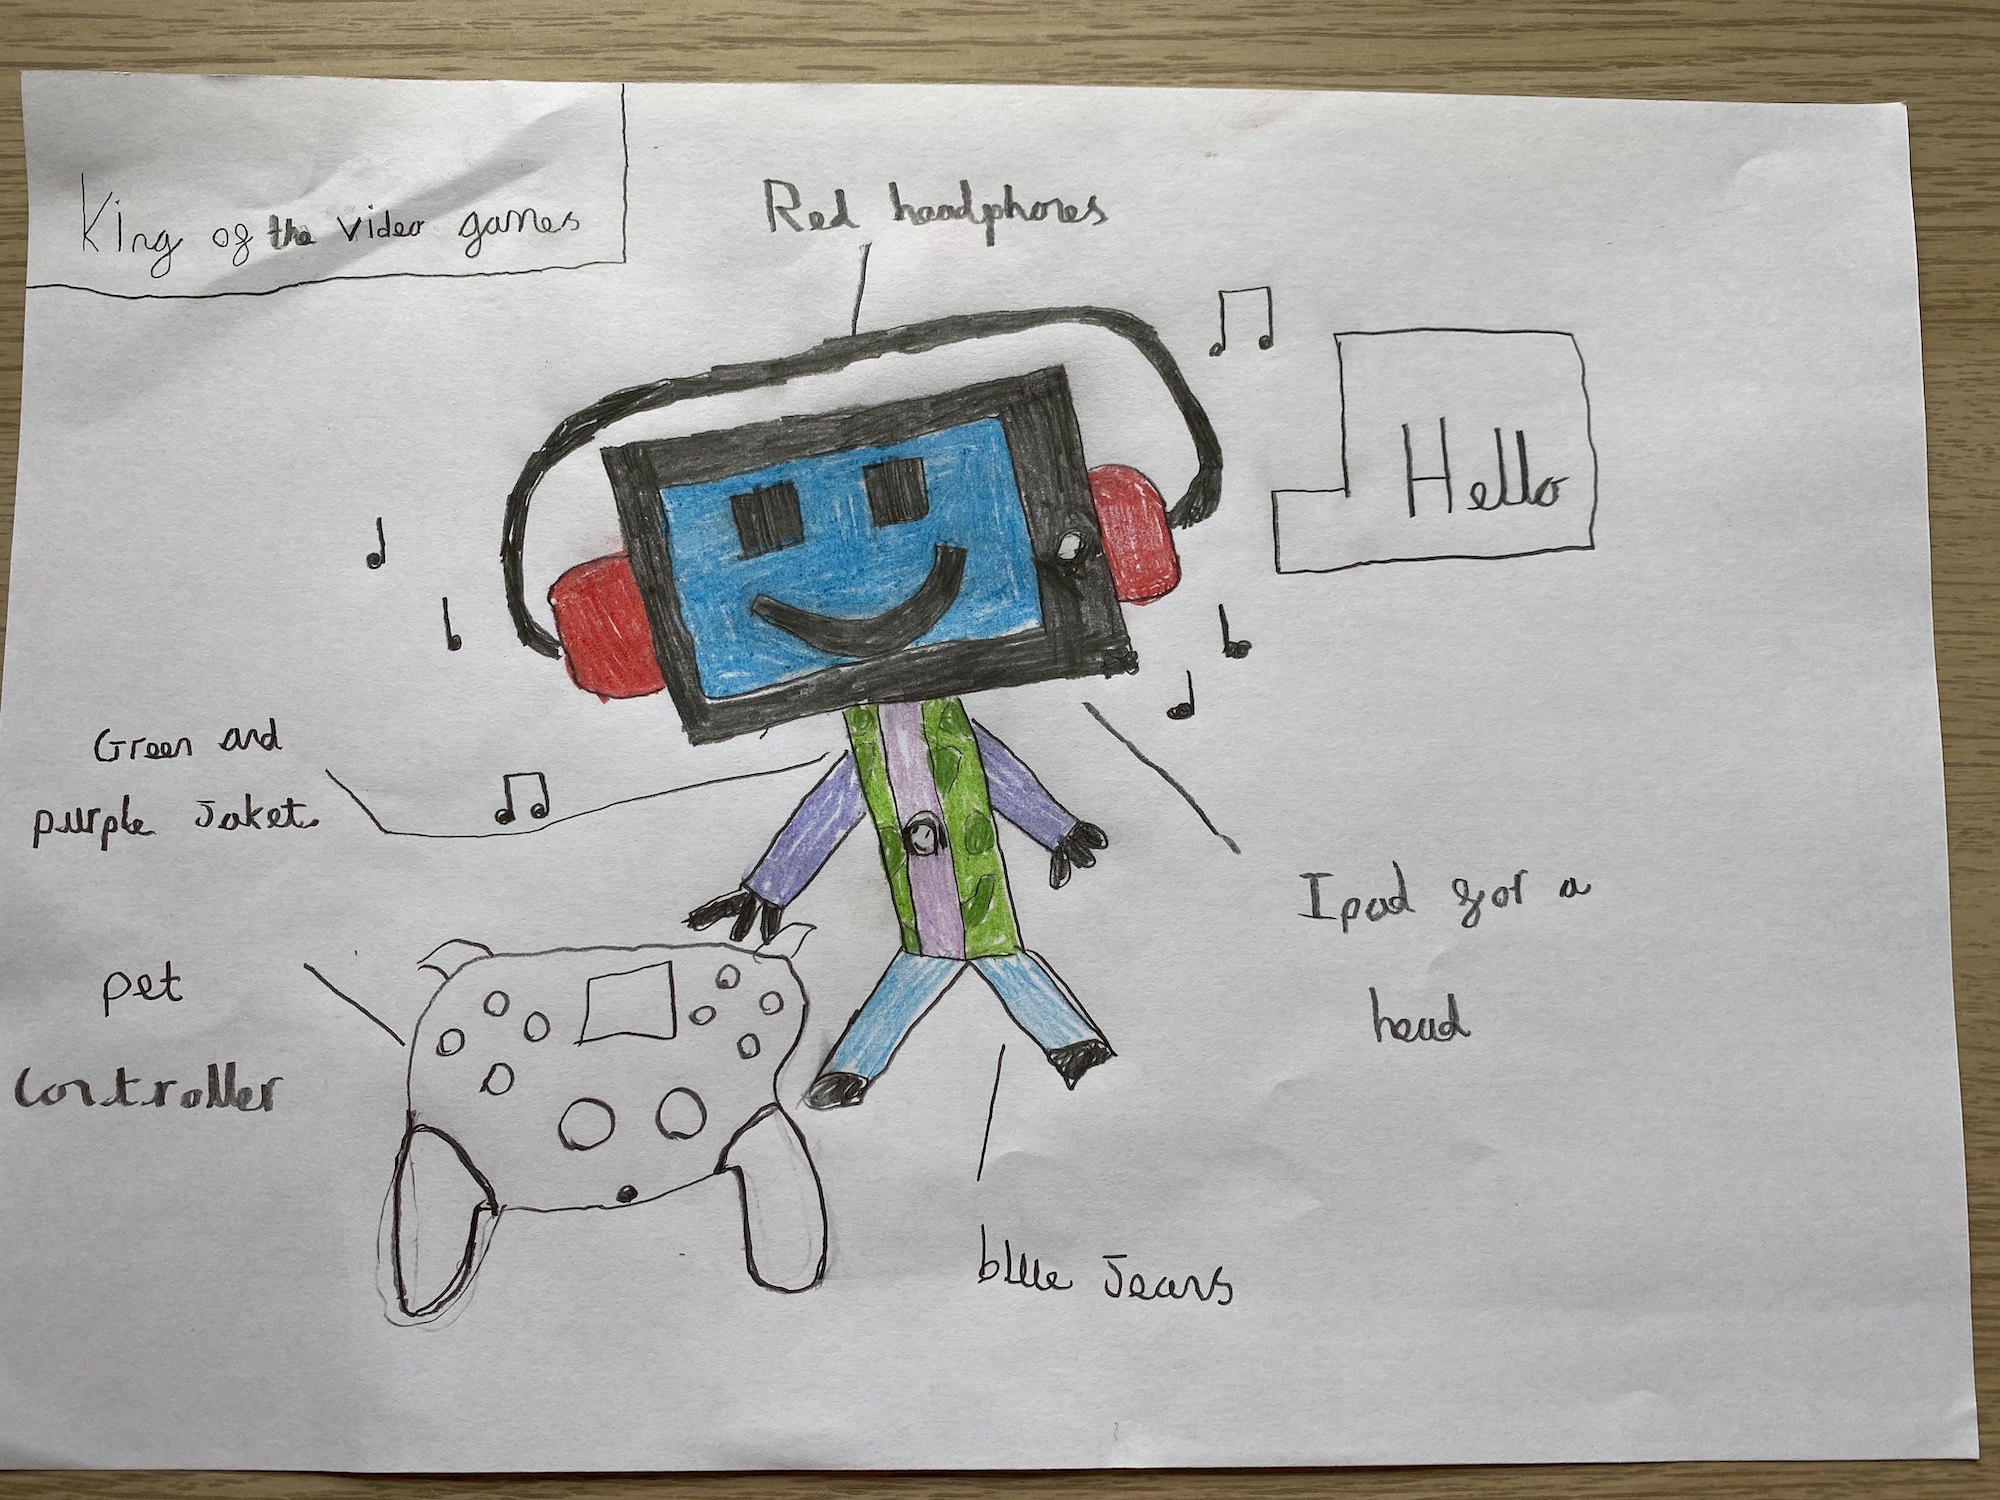 King of the video games
Red headphones
Hello
Green and
purple Jaket.
Ipad for a
head
pet
controller
blue Jeans